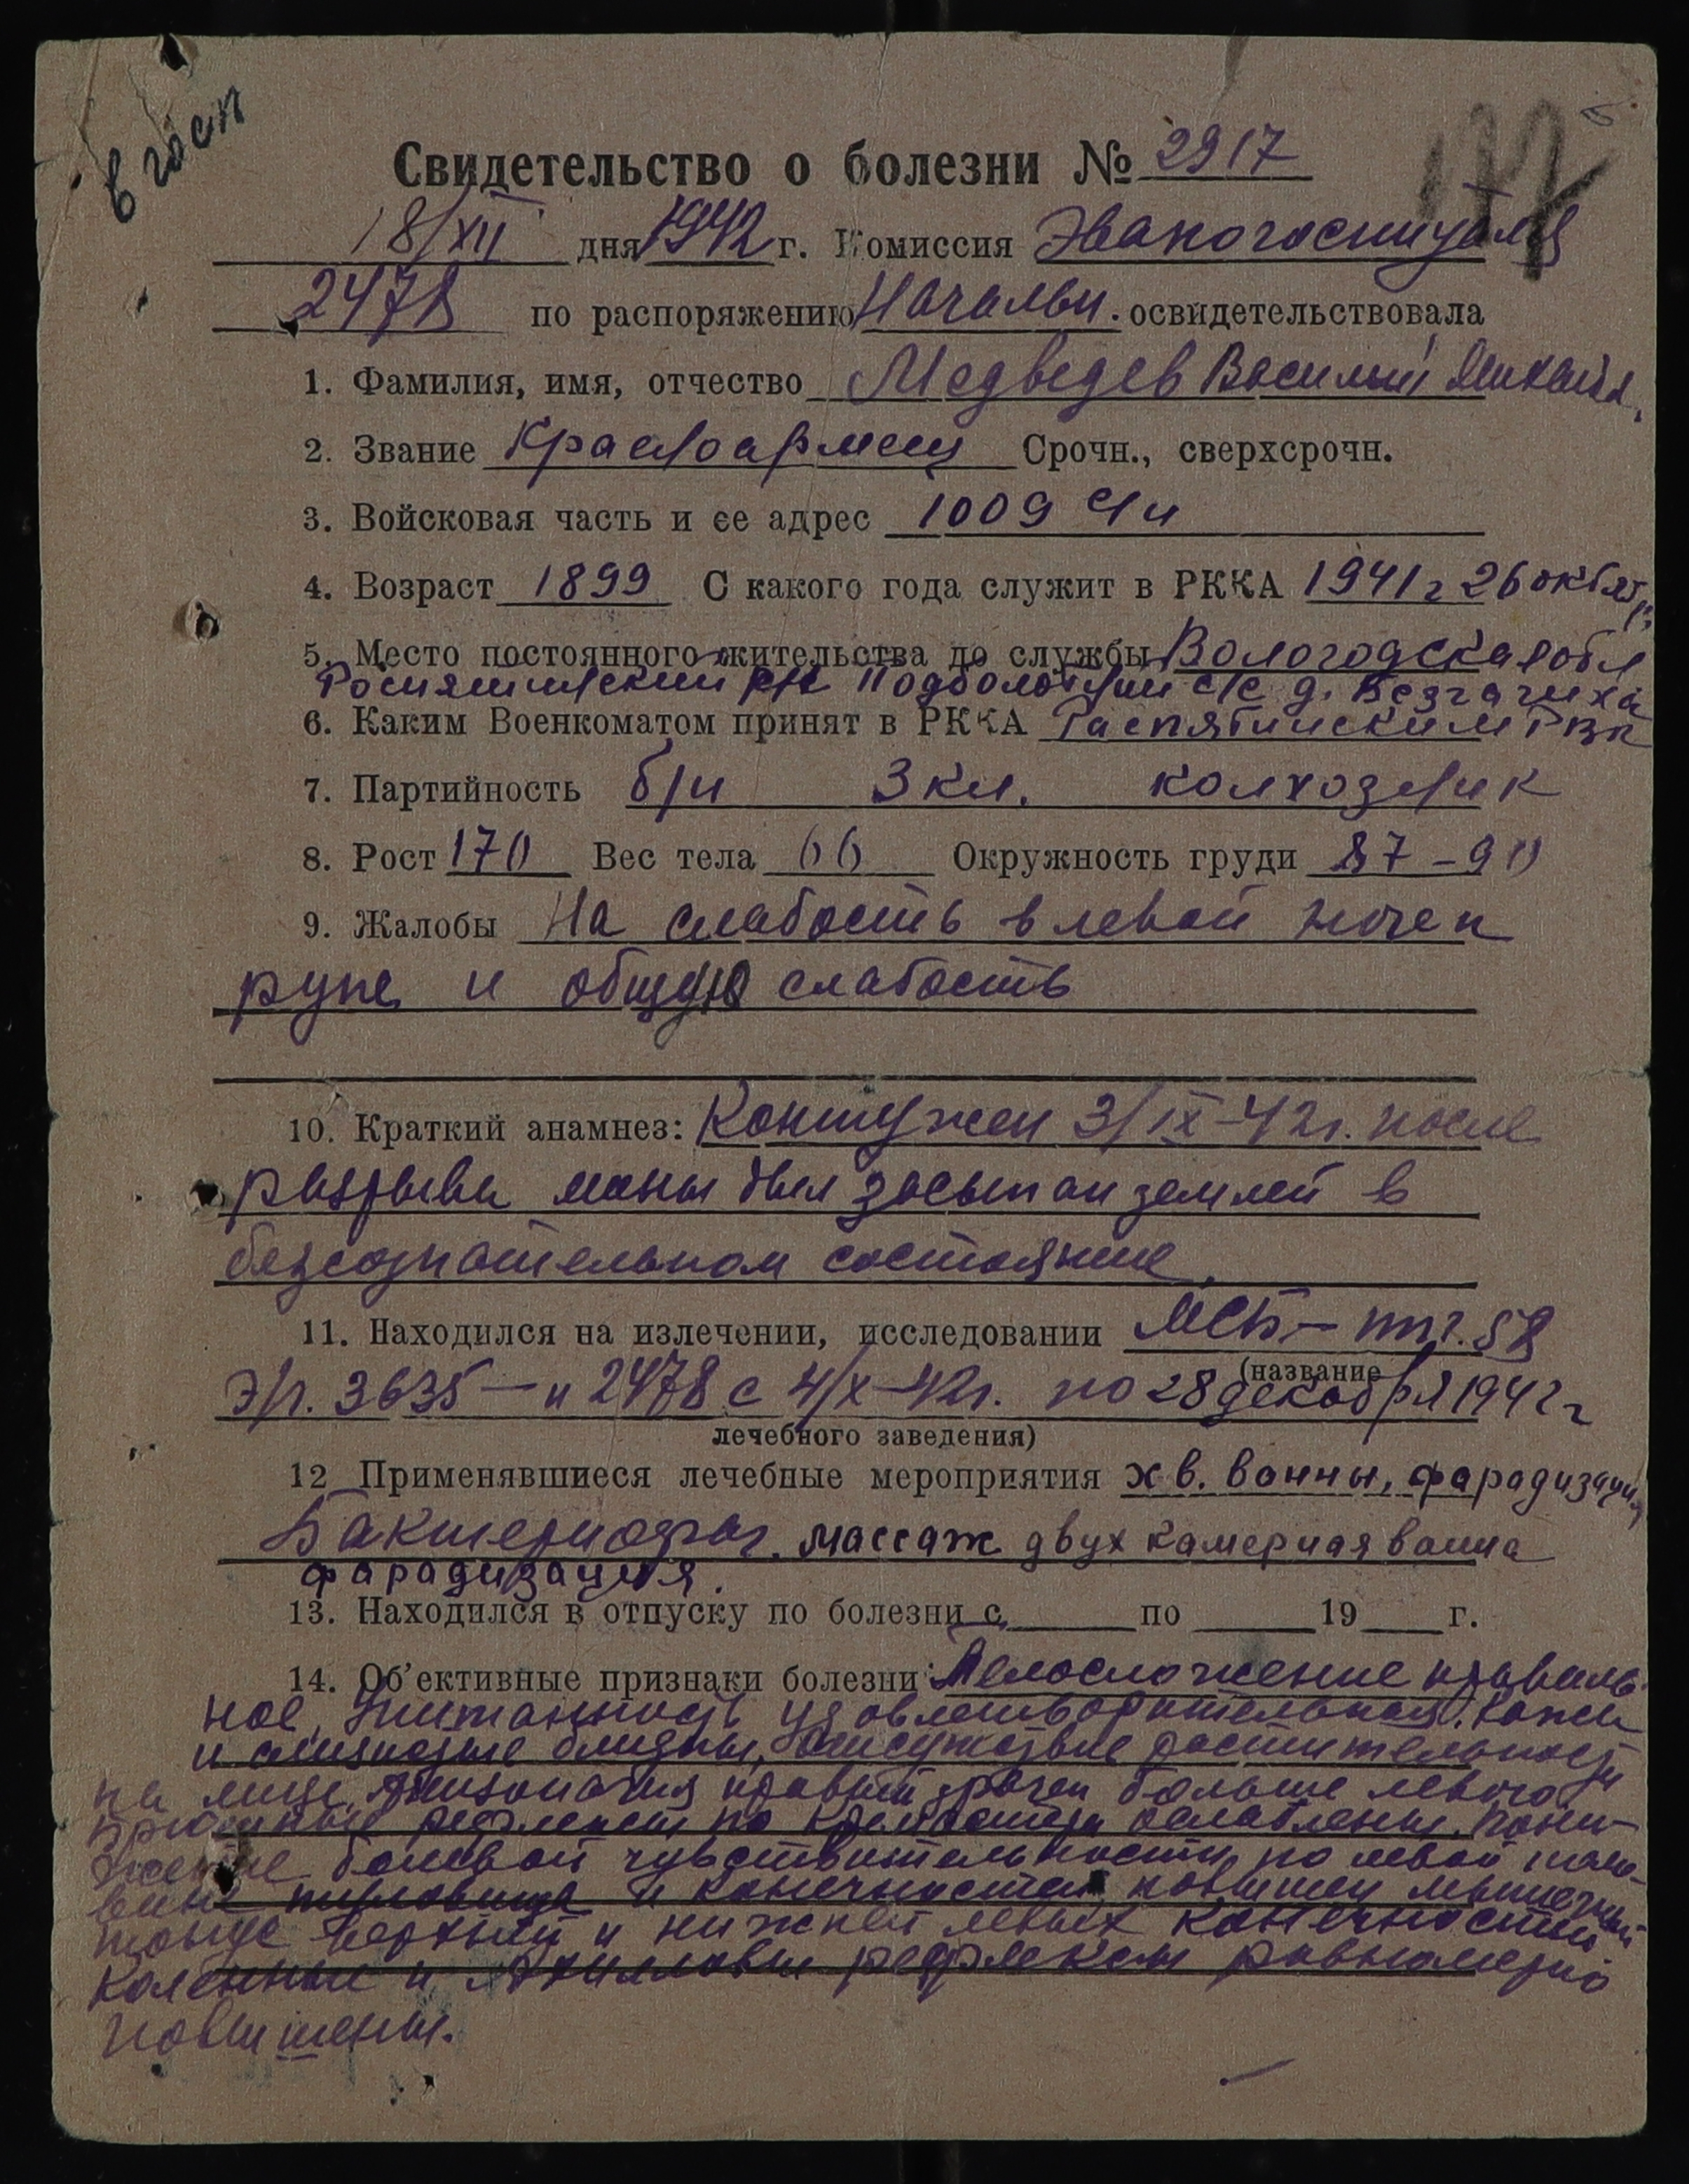 в госп
Свидетельство о болезни № 2917
177
18/XII дня 1942 г. Комиссия Эвакогоспиталя
2478 по распоряжению Начальн. освидетельствовала
1. Фамилия, имя, отчество Медведев Василий Михайл.
2. Звание Красноармеец Срочн., сверхсрочн.
3. Войсковая часть и ее адрес 1009 сп
4. Возраст 1899 С какого года служит в РККА 1941 г 26 октяб
5. Место постоянного жительства до службы Вологодская обл
Рослятинский р/н Подболотный с/с д.
6. Каким Военкоматом принят в РККА Раслятинским РВК
7. Партийность б/п 3 кл. колхозник
8. Рост 170 Вес тела 66 Окружность груди 87-90
9. Жалобы На слабость в левой ноге и
руке и общую слабость
10. Краткий анамнез: Контужен 3/IX-42г. после
разрыва мины был засыпан землей в
безсознательном состояние.
11. Находился на излечении, исследовании МСБ - ппг. 58
(название
э/г. 3635 - и 2478 с 4/X-42г. по 28 декабря 1942 г
лечебного заведения)
12 Применявшиеся лечебные мероприятия хв. ванны, фарадизация,
Бактериофаг. массаж двух камерная ванна
фарадизация.
13. Находился в отпуску по болезни с по 19 г.
14. Об'ективные признаки болезни: Телосложение правиль-
ное, Упитанность удовлетворительная. Кожа
и слизистые бледны, отсутствие растительности
на лице, Анизокория правый зрачок больше левого
брюшные рефлексы ослаблены. Пони-
жение болевой чувствительности по левой поло-
вине туловища и конечностей повышен мышечный
тонус верхней и нижней левых конечностей
Коленные и Ахилловы рефлексы равномерно
повышены.